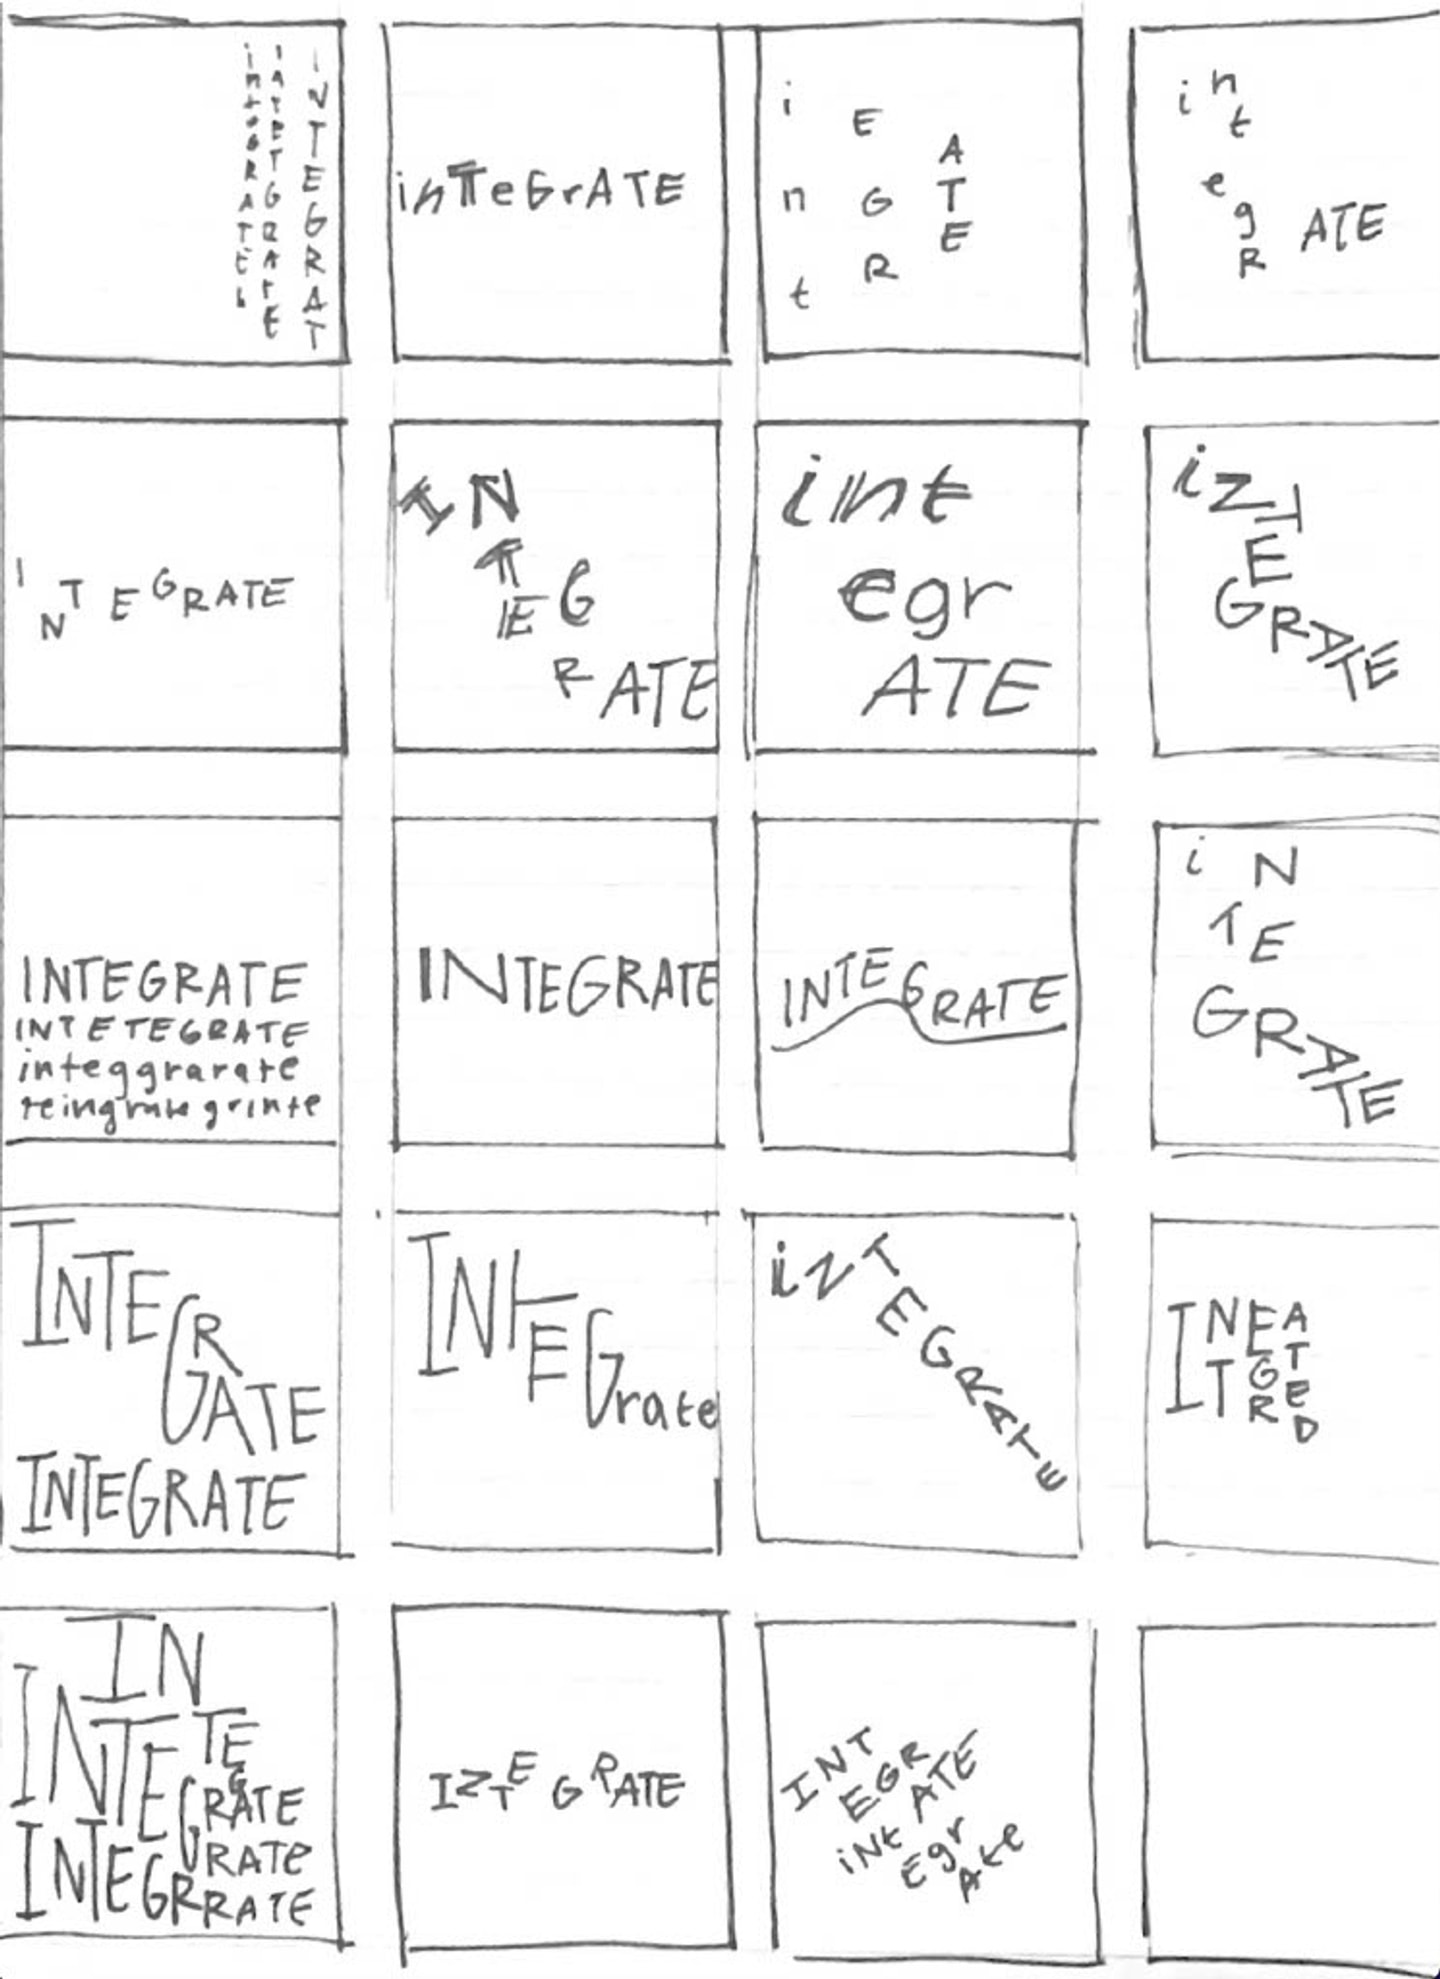 INTEGRAT
inTeGrATE
i n t
E G R
A T E
i n t
e g R ATE
INTEGRATE
IN
TEG
RATE
int
egr
ATE
iZTEGRATE
INTEGRATE
INTETEGRATE
integgrarate
INTEGRATE
INTEGRATE
iN
TE
GRATE
INTEGRATE
INTEGRATE
INTEGrate
iZTEGRATE
INEA
ITGT
RED
IN
INTE TE
GRATE
GRATe
INTEGRRATE
IZTEGRATE
INT
EGR
ATE
iNt
Egr
Ate